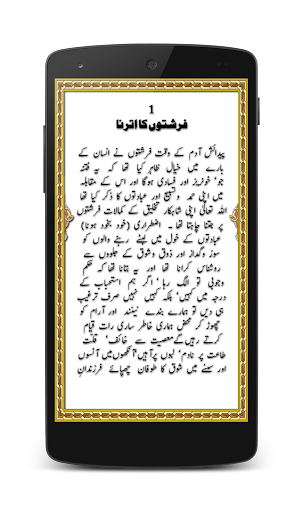 1
فرشتوں کا اترنا
پیدائش آدم کے وقت فرشتوں نے انسان کے
بارے میں خیال ظاہر کیا تھا کہ یہ فتنہ
جو' خونریز اور فسادی ہوگا اور اس کے مقابلہ
میں اپنی حمد و تسبیح اور عبادتوں کا ذکر کیا تھا
اللہ تعالیٰ اپنی شاہکار تخلیق کے کمالات فرشتوں
پر جتنا چاہتا تھا۔ اضطراری (خود بخود ہونا)
عبادتوں کے خول میں لپٹے رہنے والوں کو
سوز وگداز اور ذوق وشوق کے جلووں سے
روشناس کرانا تھا اور یہ بتانا تھا کہ حکم
وجوبی تو الگ رہا' اگر ہم استحباب کے
درجہ میں کہیں' بلکہ کہیں نہیں صرف ترغیب
ہی دیں تو ہمارے بندے نیند اور آرام کو
چھوڑ کر محض ہماری خاطر ساری رات قیام
کرتے رہیں گے معصیت سے خائف' قلت
طاعت پر نادم' لبوں پر آہیں' آنکھوں میں آنسوں
اور سینے میں شوق کا طوفان چھپائے فرزندان